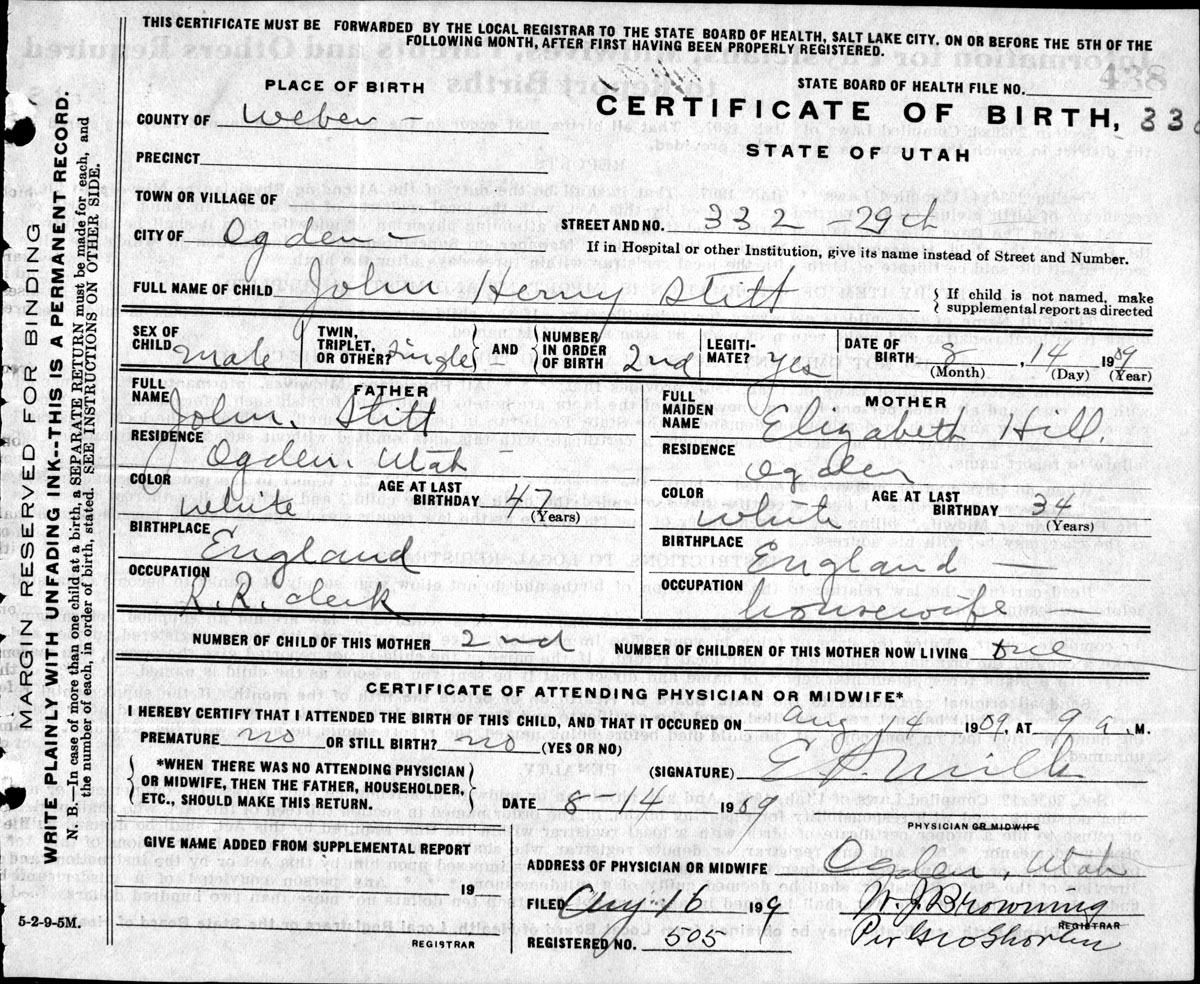 THIS CERTIFICATE MUST BE FORWARDED BY THE LOCAL REGISTRAR TO THE STATE BOARD OF HEALTH, SALT LAKE CITY, ON OR BEFORE THE 5TH OF THE
FOLLOWING MONTH, AFTER FIRST HAVING BEEN PROPERLY REGISTERED.
MARGIN RESERVED FOR BINDING
WRITE PLAINLY WITH UNFADING INK---THIS IS A PERMANENT RECORD.
N. B.—In case of more than one child at a birth, a SEPARATE RETURN must be made for each, and
the number of each, in order of birth, stated. SEE INSTRUCTIONS ON OTHER SIDE.
PLACE OF BIRTH
STATE BOARD OF HEALTH FILE NO.
438
CERTIFICATE OF BIRTH, 33
STATE OF UTAH
COUNTY OF Weber
PRECINCT
TOWN OR VILLAGE OF
CITY OF Ogden
STREET AND NO. 332 29th
If in Hospital or other Institution, give its name instead of Street and Number.
FULL NAME OF CHILD John Henry Stitt
{ If child is not named, make
supplemental report as directed
SEX OF CHILD male
TWIN, TRIPLET, OR OTHER? Single
AND
NUMBER IN ORDER OF BIRTH 2nd
LEGITI-MATE? yes
DATE OF BIRTH 8, 14 1909
(Month) (Day) (Year)
FATHER
FULL NAME John Stitt
RESIDENCE
Ogden Utah
COLOR White
AGE AT LAST BIRTHDAY 47
(Years)
BIRTHPLACE England
OCCUPATION
R. R. clerk
MOTHER
FULL MAIDEN NAME Elizabeth Hill.
RESIDENCE Ogden
COLOR White
AGE AT LAST BIRTHDAY 34
(Years)
BIRTHPLACE England
OCCUPATION housewife
NUMBER OF CHILD OF THIS MOTHER 2nd
NUMBER OF CHILDREN OF THIS MOTHER NOW LIVING
CERTIFICATE OF ATTENDING PHYSICIAN OR MIDWIFE*
I HEREBY CERTIFY THAT I ATTENDED THE BIRTH OF THIS CHILD, AND THAT IT OCCURED ON Aug 14 1909, AT 9 a. M.
PREMATURE no OR STILL BIRTH? no (YES OR NO)
*WHEN THERE WAS NO ATTENDING PHYSICIAN
OR MIDWIFE, THEN THE FATHER, HOUSEHOLDER,
ETC., SHOULD MAKE THIS RETURN.
(SIGNATURE)
DATE 8-14 1909
PHYSICIAN OR MIDWIFE
GIVE NAME ADDED FROM SUPPLEMENTAL REPORT
19
REGISTRAR
ADDRESS OF PHYSICIAN OR MIDWIFE Ogden, Utah
FILED Aug 16 1909
W. J. Browning
REGISTRAR
REGISTERED NO. 505
Per
5-2-9-5M.